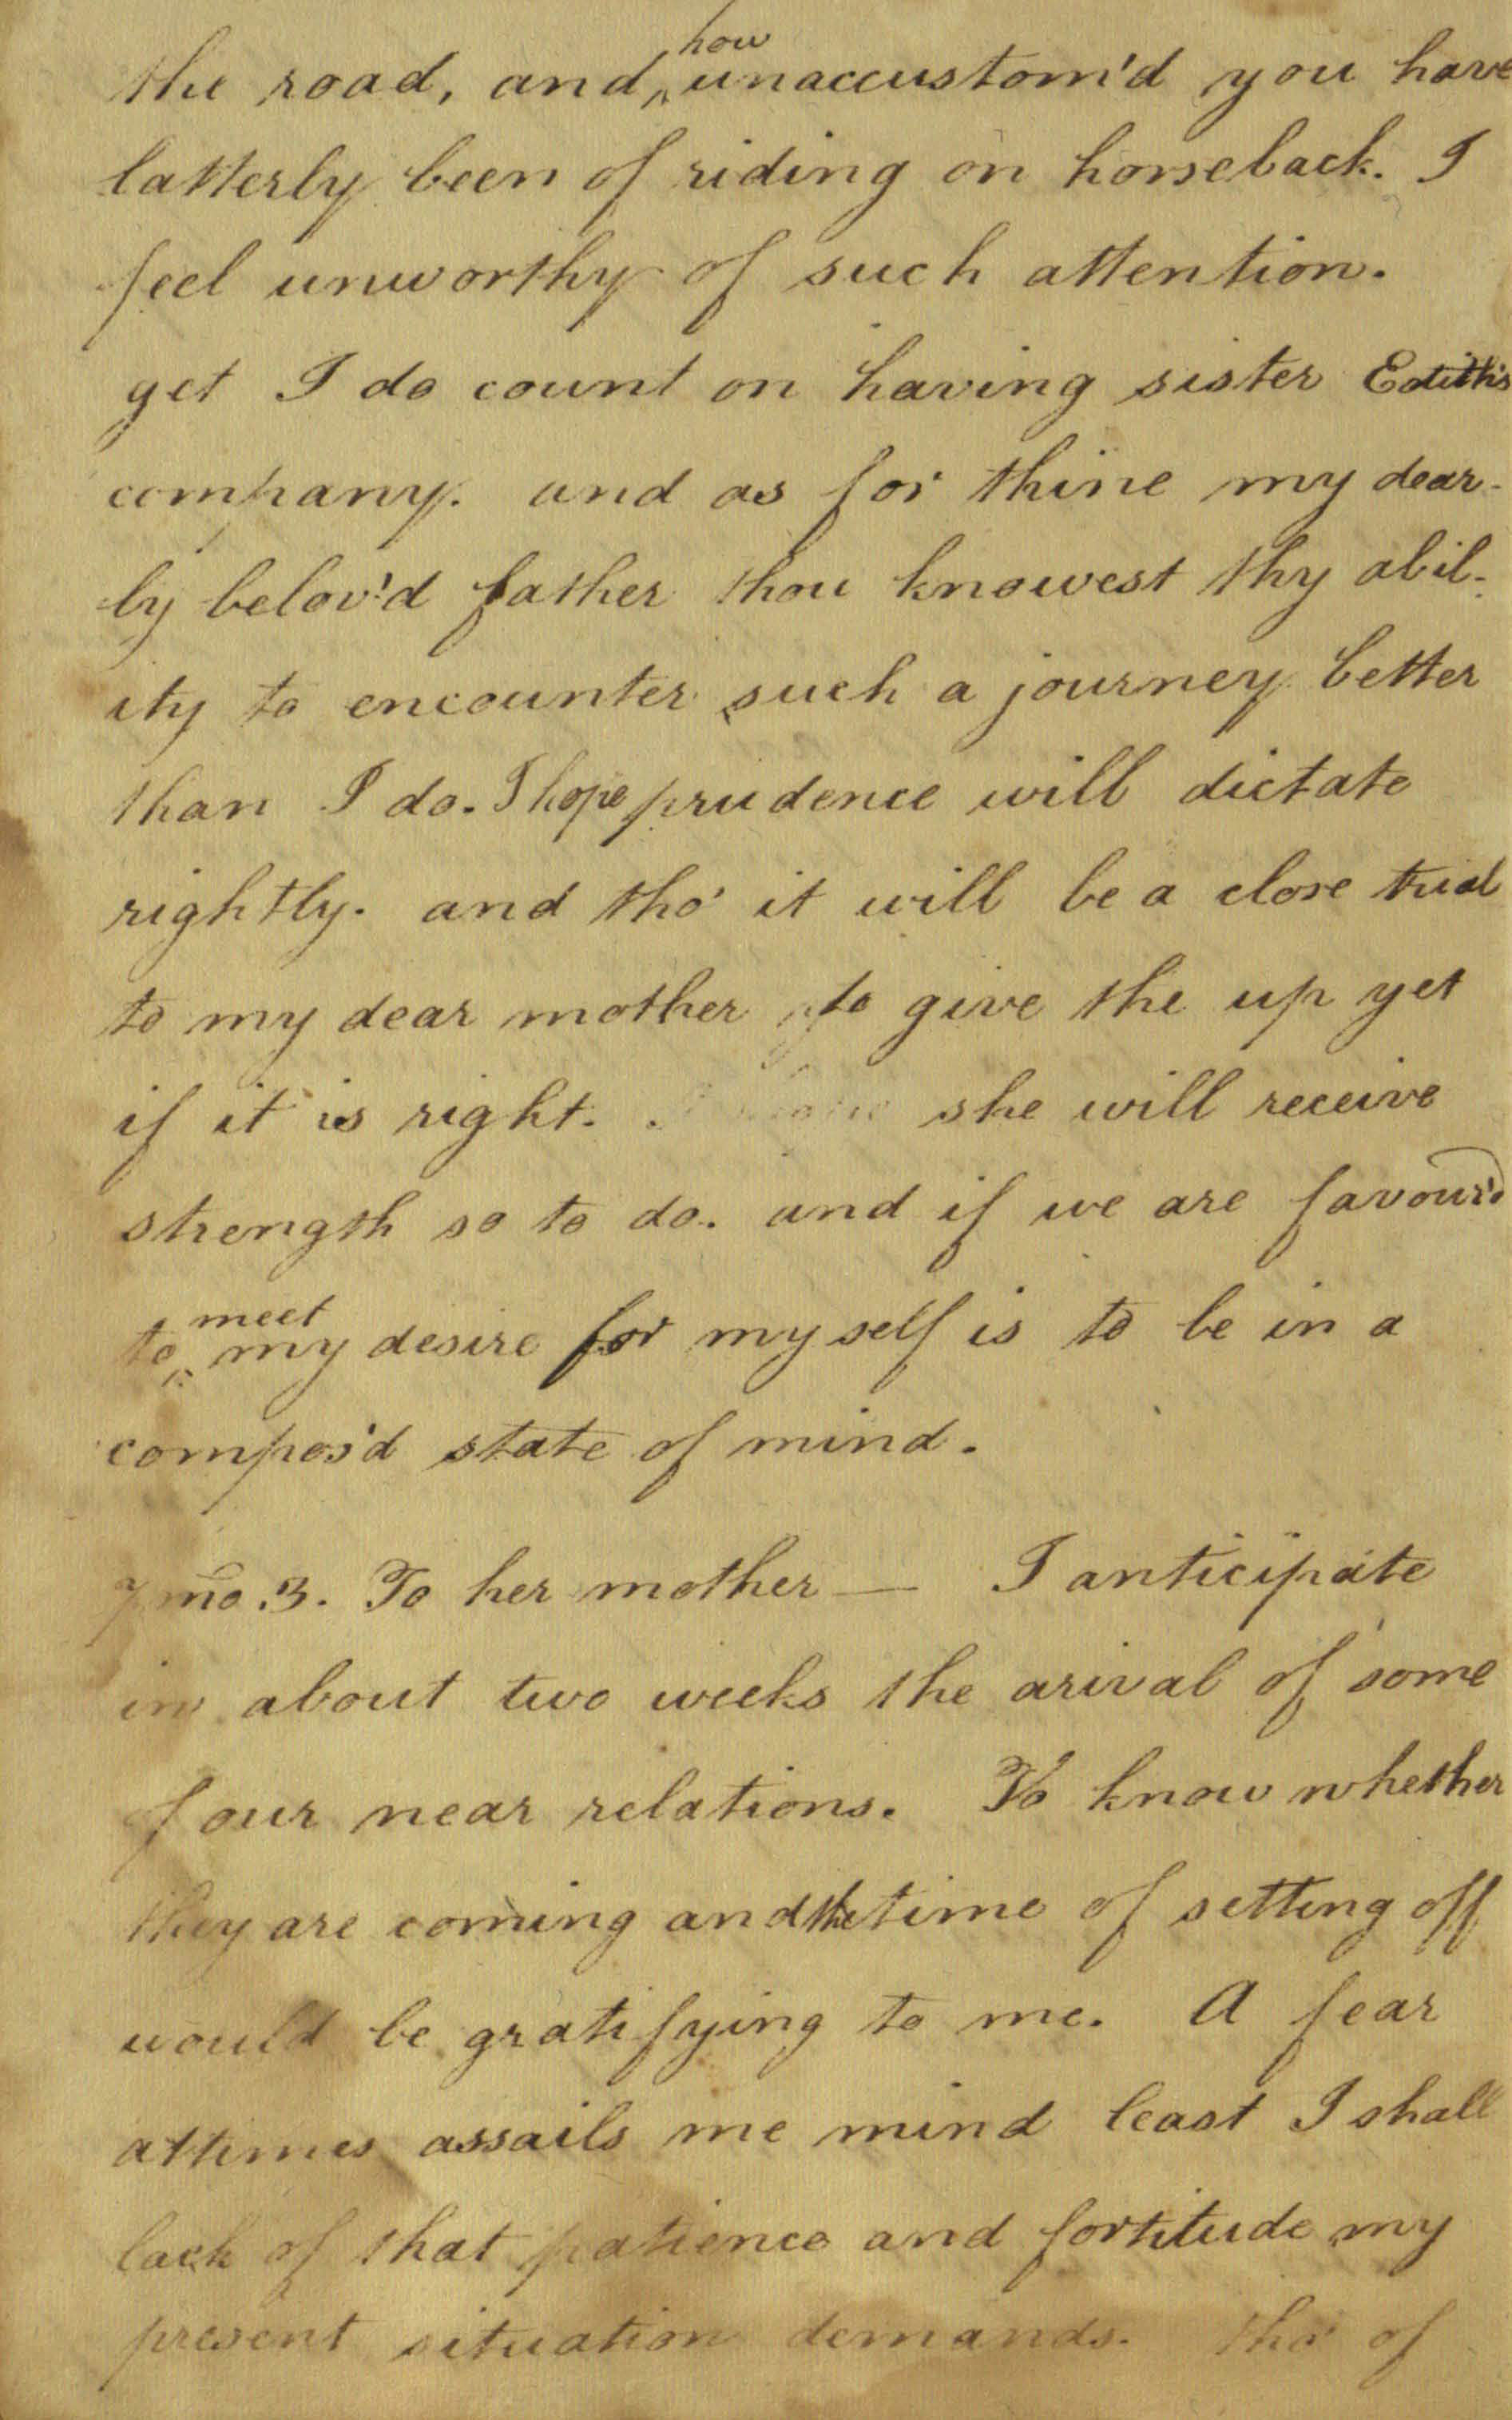 the road, and how unaccustom'd you have
latterly been of riding on horseback. I
feel unworthy of such attention.
yet I do count on having sister Edith's
company. and as for thine my dear-
ly belov'd father thou knowest thy abil-
ity to encounter such a journey better
than I do. I hope prudence will dictate
rightly. and tho' it will be a close trial
to my dear mother to give the up yet
if it is right. she will receive
strength so to do. and if we are favour'd
to meet my desire for myself is to be in a
compos'd state of mind.
7 mo. 3. To her mother — I anticipate
in about two weeks the arival of some
of our near relations. To know whether
they are coming and the time of setting off
would be gratifying to me. A fear
attimes assails me mind least I shall
lack of that patience and fortitude my
present situation demands. tho' of